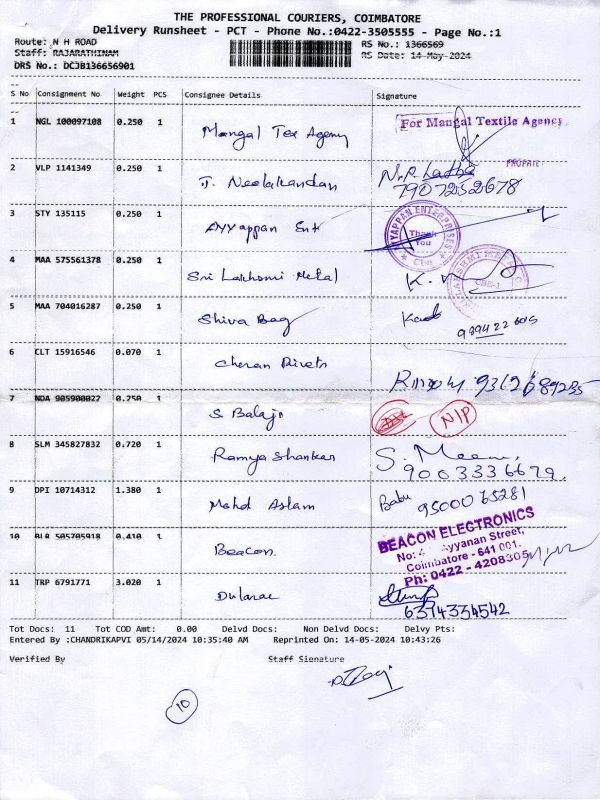 THE PROFESSIONAL COURIERS, COIMBATORE
Delivery Runsheet - PCT - Phone No.:0422-3505555 - Page No.:1
Route: N H ROAD RS No.: 1366569
Staff: RAJARATHINAM RS Date: 14-May-2024
DRS No.: DCJB136656901
S No Consignment No Weight PCS Consignee Details Signature
1 NGL 100097108 0.250 1 Mangal Tex Agency For Mangal Textile Agency
2 VLP 1141349 0.250 1 T. Neelakandan N.R. Latha
7907252678
3 STY 135115 0.250 1 Ayyappan Ent AYYAPPAN ENTERPRISES Thank You
4 MAA 575561378 0.250 1 Sri Lakhsmi Metal K.
5 MAA 704016287 0.250 1 Shiva Bag
6 CLT 15916546 0.070 1 Cheran Rivets
7 NDA 905900027 0.250 1 S. Balaji N/P
8 SLM 345827832 0.720 1 Ramya Shankar S. Meena
9003336679
9 DPI 10714312 1.380 1 Mohd Aslam Babu 9500065281
10 BLR 505705918 0.410 1 Beacon. BEACON ELECTRONICS
Ayyanan Street,
Coimbatore - 641 001.
Ph: 0422 - 4208305
11 TRP 6791771 3.020 1 6374334542
Tot Docs: 11 Tot COD Amt: 0.00 Delvd Docs: Non Delvd Docs: Delvy Pts:
Entered By :CHANDRIKAPVI 05/14/2024 10:35:40 AM Reprinted On: 14-05-2024 10:43:26
Verified By Staff Signature
10